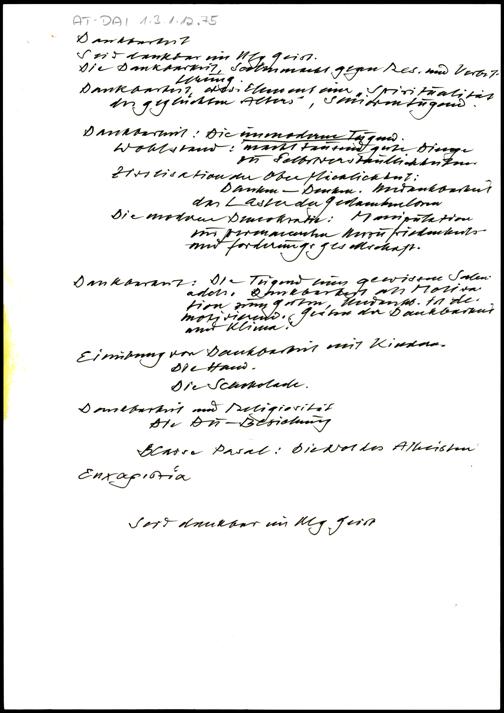 AT-DAI 1.3.1.12.75
Dankbarkeit
Seid dankbar im Hlg Geist.
Die Dankbarkeit, gegen Res. und Verbit-
terung.
Dankbarkeit, das Element einer "Spiritualität
des geglückten Alters", Seniorentugend.
Dankbarkeit: Die unmoderne Tugend.
Wohlstand: macht tausend gute Dinge
zu Selbstverständlichkeiten.
Zivilisation der Oberflächlichkeit:
Danken – Denken. Undankbarkeit
das Laster der Gedankenlosen
Die moderne Demokratie: Manipulation
zur permanenten Unzufriedenheits
und Forderungsgesellschaft.
Dankbarkeit: Die Tugend eines gewissen
Dankbarkeit als Motiva-
tion zum guten, Undank. ist de-
motivierend. Geben der Dankbarkeit
und Klima.
Einübung von Dankbarkeit mit Kindern.
Die Hand.
Die Schokolade.
Dankbarkeit und Religiosität
Die Du-Beziehung
Pascal: Die des Atheisten
Eucharistia
Seid dankbar im Hlg Geist